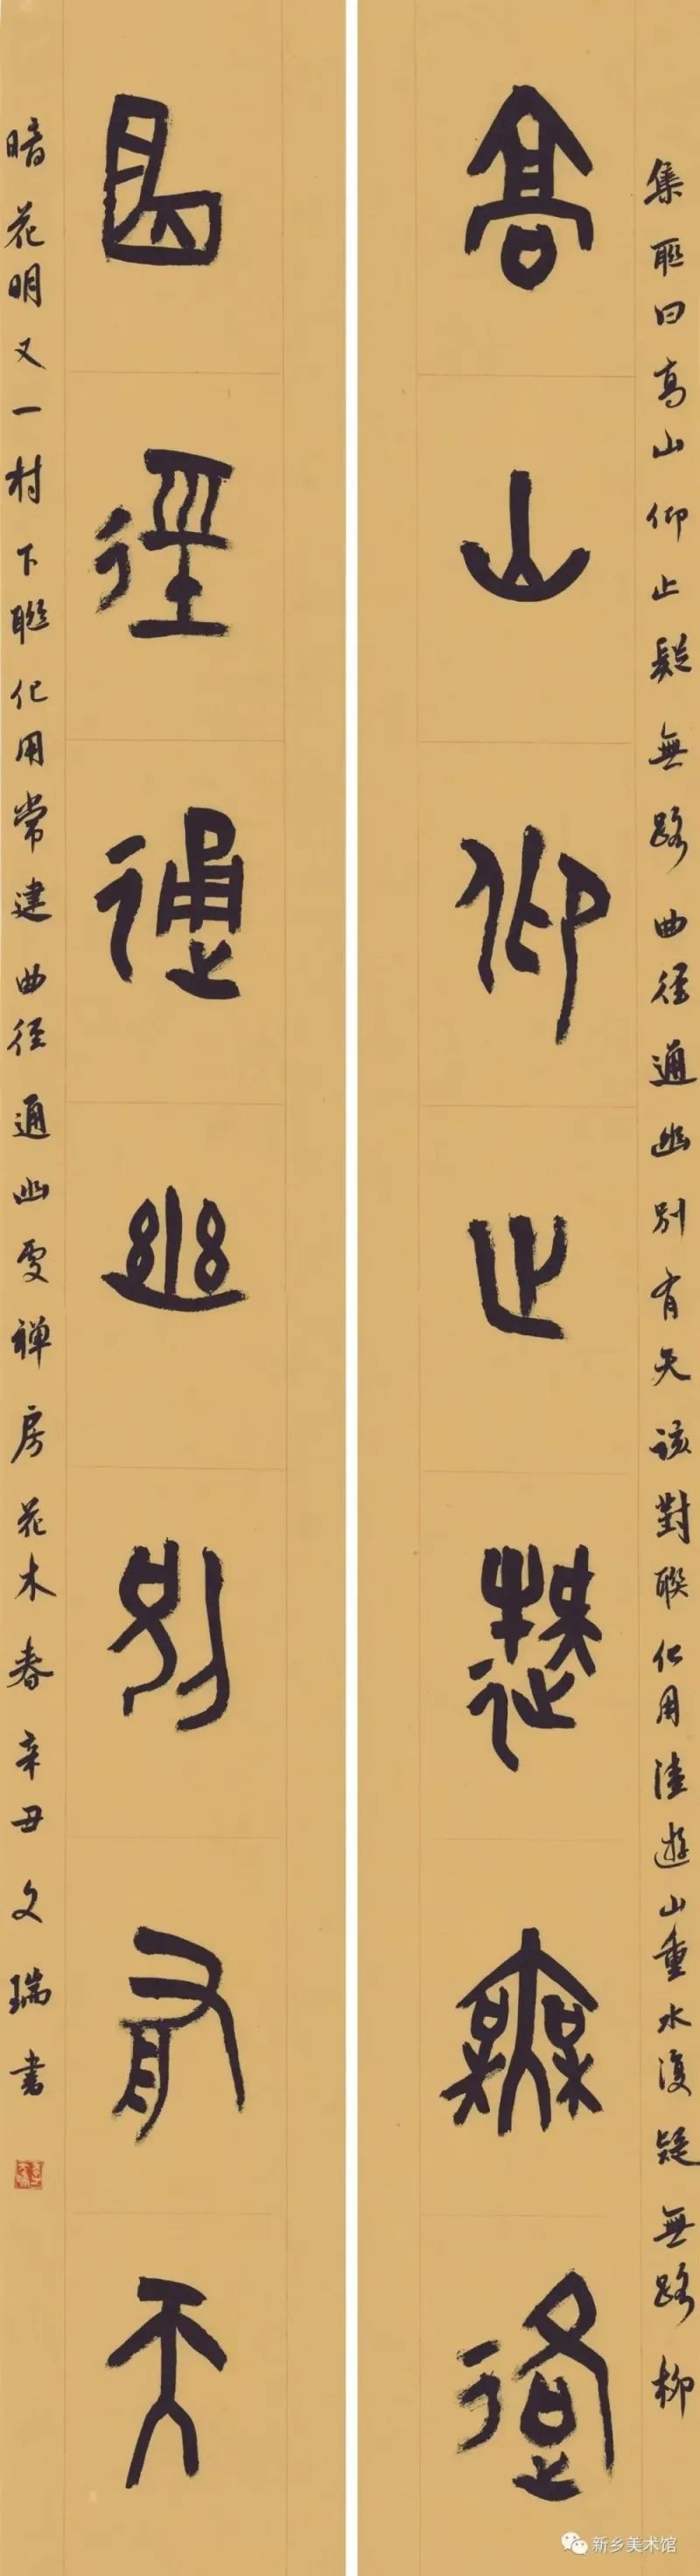 集聯曰高山仰止疑無路曲径通幽別有天该對聯化用陸遊山重水復疑無路柳
高山仰止疑無路
曲徑通幽別有天
暗花明又一村下聯化用常建曲径通幽處禅房花木春辛丑文瑞書
新乡美术馆